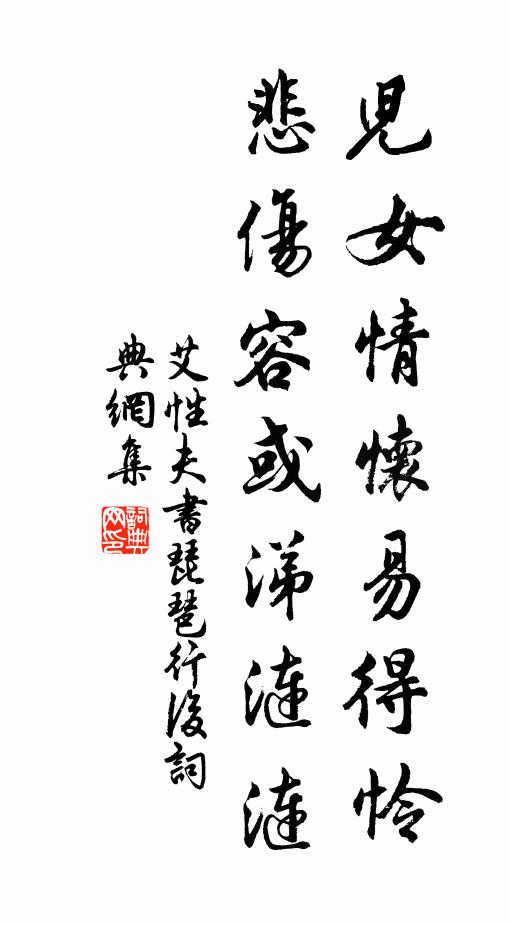 兒女情懷易得怜
悲傷容或涕漣漣
艾性夫書琵琶行後詞
典網集
詞典網印